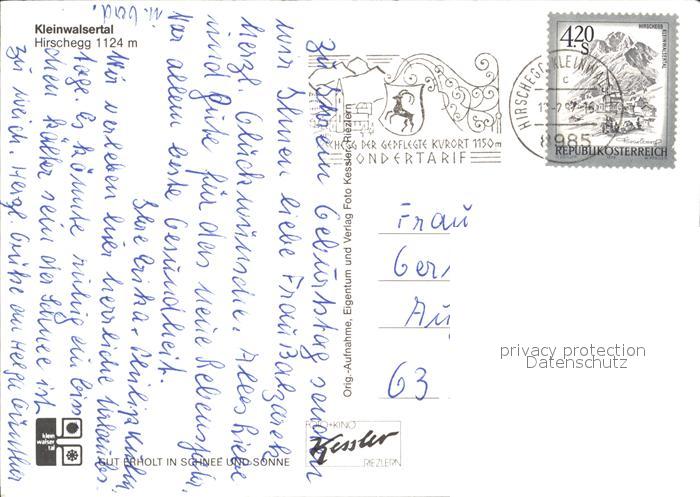 Kleinwalsertal
Hirschegg 1124 m
Zu Ihrem Geburtstag senden
wir Ihnen liebe Frau
herzl. Glückwünsche. Alles Liebe
und Gute für das neue Lebensjahr
Vor allem beste Gesundheit.
Ihre Erika +
Wir verleben hier herrliche Urlaubs-
tage. Es könnte ruhig ein biss-
chen kälter sein der Schnee ist
zu weich. Herzl. Grüße an Helga
Orig.-Aufnahme, Eigentum und Verlag Foto Kessler, Riezlern
HIRSCHEGG DER GEPFLEGTE KURORT 1150m
SONDERTARIF
HIRSCHEGG, KLEINWALS
c
8985
4.20
S
HIRSCHEGG
KLEINWALSERTAL
REPUBLIK ÖSTERREICH
Frau
Ger
Au
63
privacy protection
Datenschutz
klein
walser
tal
GUT ERHOLT IN SCHNEE UND SONNE
FOTO+KINO
Kessler
RIEZLERN